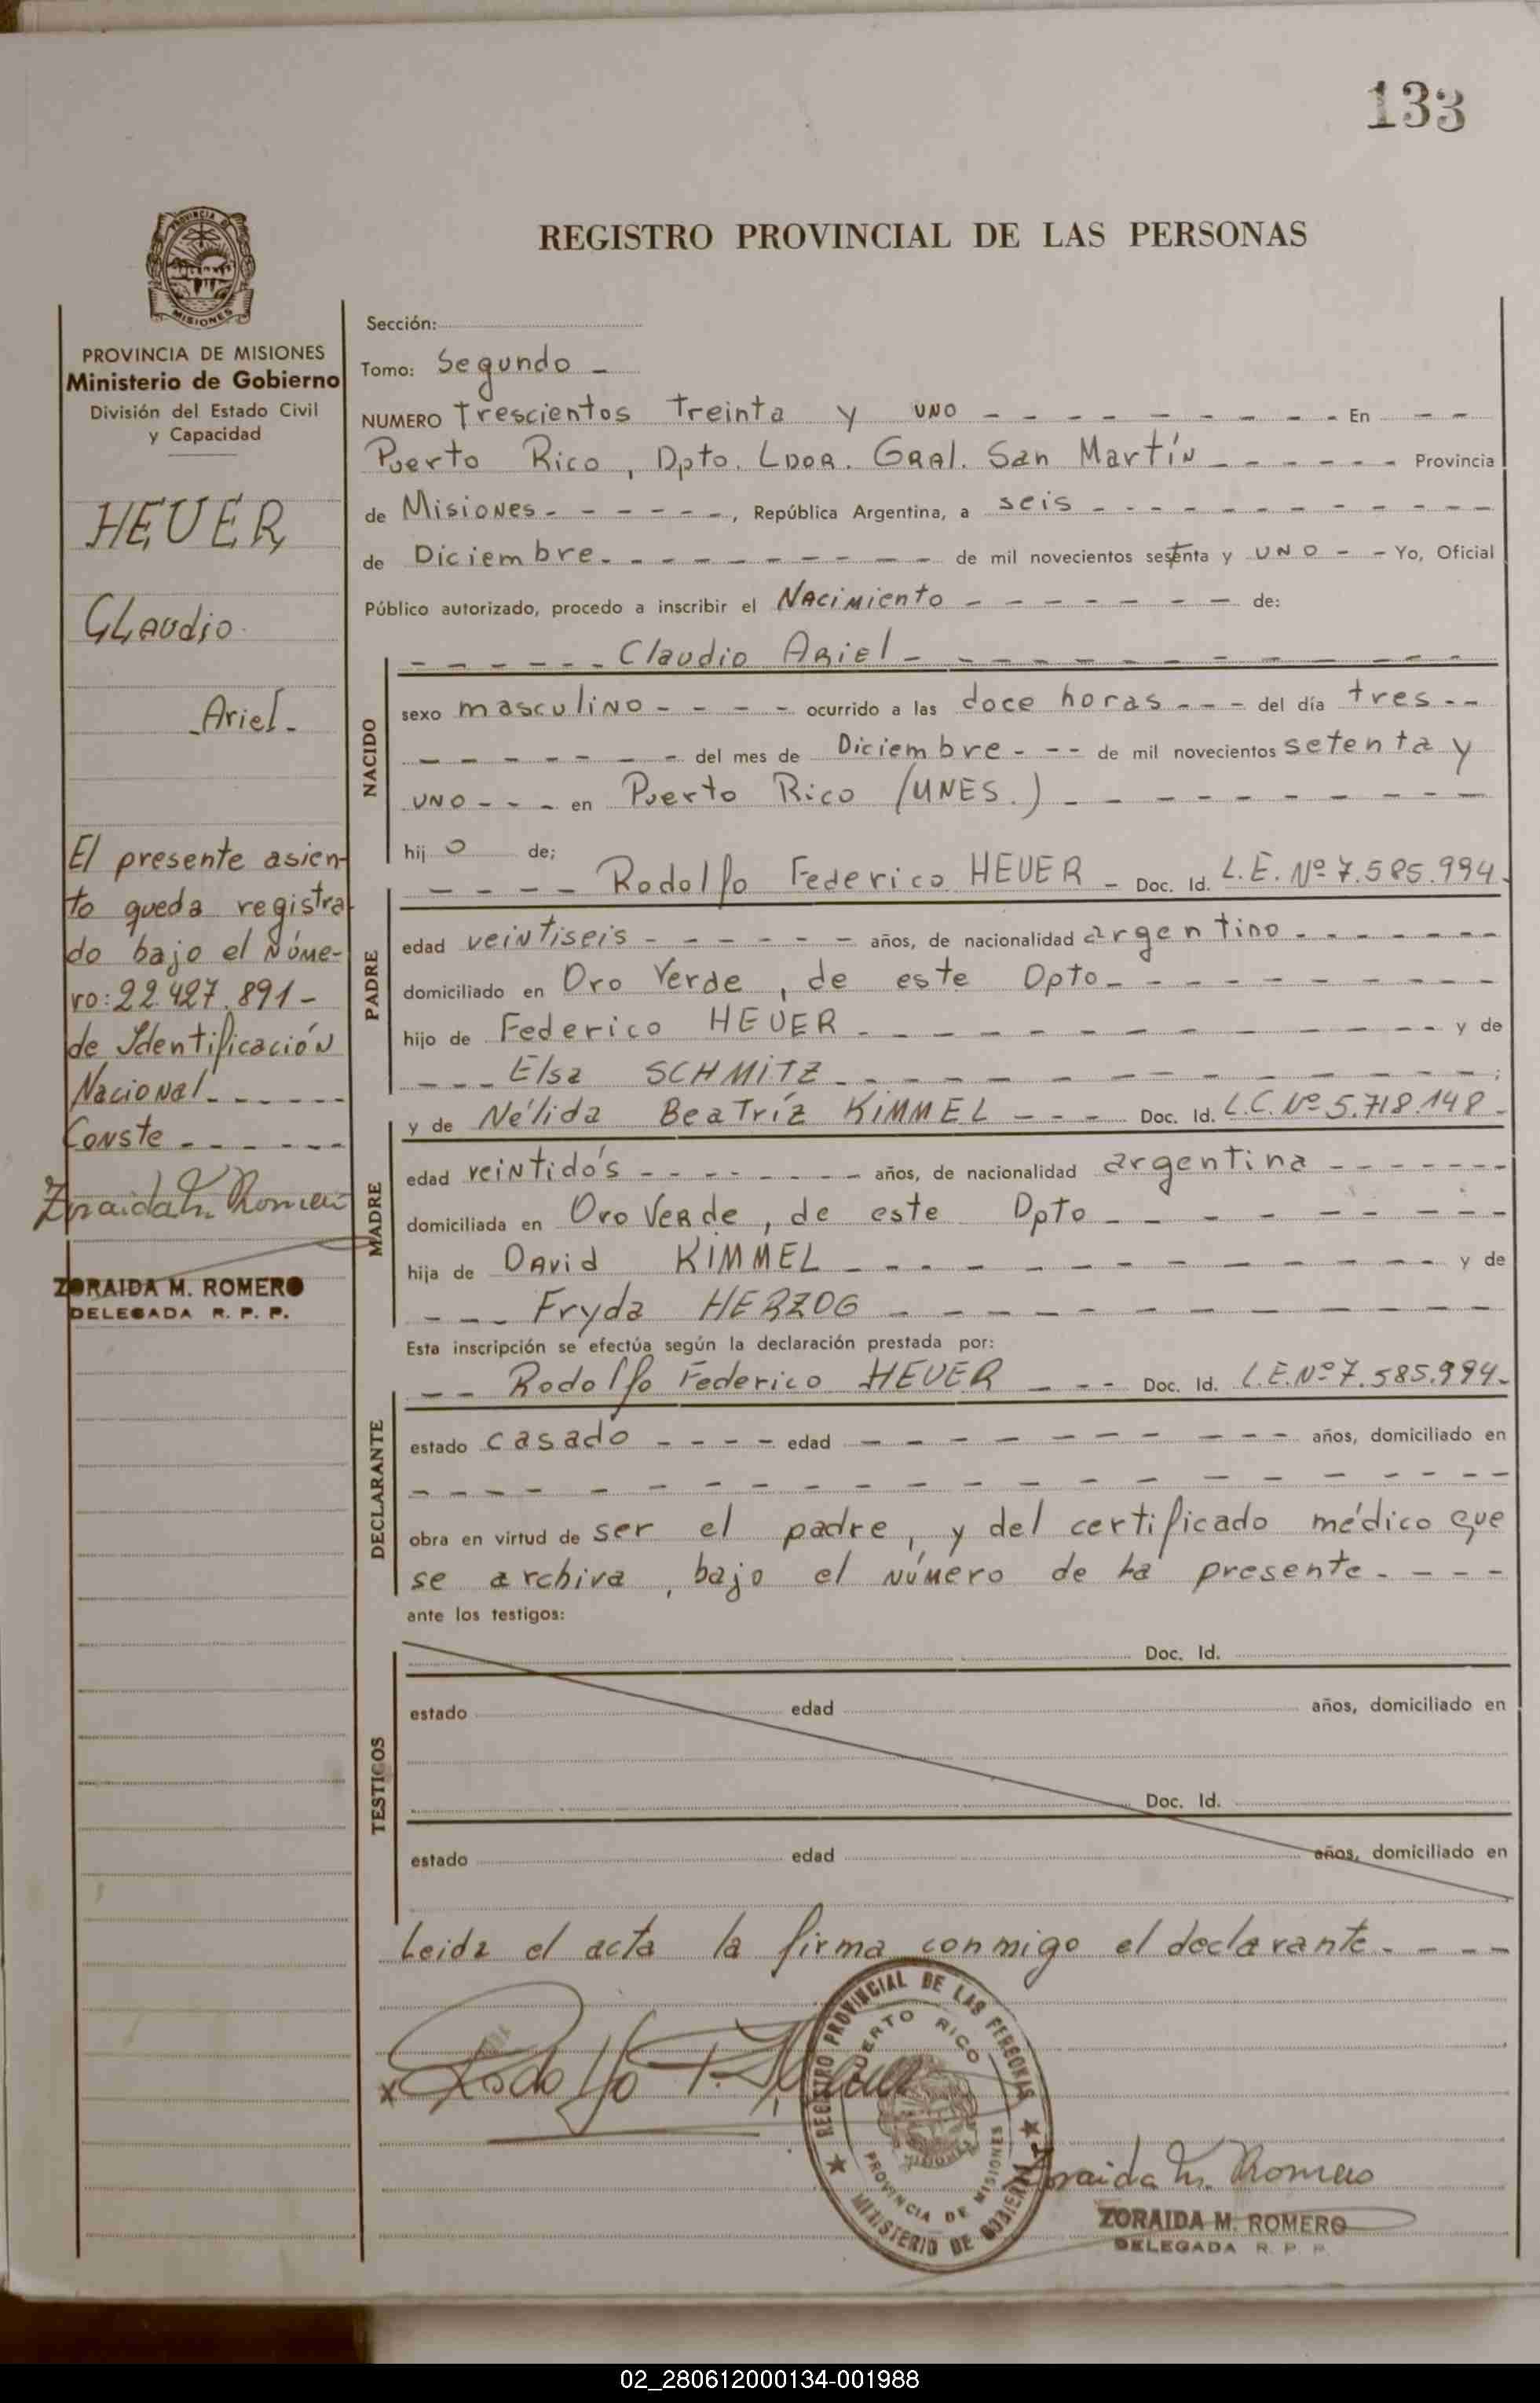 133
REGISTRO PROVINCIAL DE LAS PERSONAS
PROVINCIA DE MISIONES
Ministerio de Gobierno
División del Estado Civil
y Capacidad
HEUER
Claudio
Ariel-
El presente asien-
to queda registra-
do bajo el Núme-
ro: 22.427.891-
de Identificación
Nacional------
Conste-----
Zoraida M. Romero
ZORAIDA M. ROMERO
DELEGADA R. P. P.
Sección:
Tomo: Segundo -
NUMERO Trescientos Treinta y UNO - - - - - - - - - En - -
Puerto Rico, Dpto. LDOR. GRAL. San Martín - - - - - - Provincia
de Misiones - - - - - -, República Argentina, a seis - - - - - - - - - -
de Diciembre - - - - - - - - - de mil novecientos setenta y UNO - - Yo, Oficial
Público autorizado, procedo a inscribir el Nacimiento - - - - - - - de:
NACIDO
- - - - - - Claudio Ariel - - - - - - - - - - -
sexo masculino - - - - ocurrido a las doce horas - - - del día tres - -
- - - - - - - del mes de Diciembre - - - de mil novecientos setenta y
UNO - - - en Puerto Rico (UNES.) - - - - - - - - - -
hij o de;
PADRE
- - - - Rodolfo Federico HEUER - Doc. Id. L.E. Nº 7.585.994.
edad veintiseis - - - - - - años, de nacionalidad argentino - - - - - - -
domiciliado en Oro Verde, de este Dpto - - - - - - - - -
hijo de Federico HEUER - - - - - - - - - - - y de
- - - Elsa SCHMITZ - - - - - - - - - - - - ;
MADRE
y de Nélida Beatríz KIMMEL - - - Doc. Id. L.C. Nº 5.718.148-
edad veintidós - - - - - - - años, de nacionalidad argentina - - - - - -
domiciliada en Oro Verde, de este Dpto - - - - - - - - -
hija de David KIMMEL - - - - - - - - - - - y de
- - - Fryda HERZOG - - - - - - - - - - -
Esta inscripción se efectúa según la declaración prestada por:
DECLARANTE
- - Rodolfo Federico HEUER - - - Doc. Id. L.E. Nº 7.585.994-
estado casado - - - - edad - - - - - - - - - - años, domiciliado en
- - - - - - - - - - - - - - - - - - - -
obra en virtud de ser el padre, y del certificado médico que
se archiva, bajo el número de la presente - - - -
ante los testigos:
TESTIGOS
Doc. Id.
estado edad años, domiciliado en
Doc. Id.
estado edad años, domiciliado en
Leida el acta la firma conmigo el declarante - - - -
x Rodolfo F. Heuer
REGISTRO PROVINCIAL DE LAS PERSONAS
PUERTO RICO
PROVINCIA DE MISIONES
MINISTERIO DE GOBIERNO
Zoraida M. Romero
ZORAIDA M. ROMERO
DELEGADA R. P. P.
02_280612000134-001988